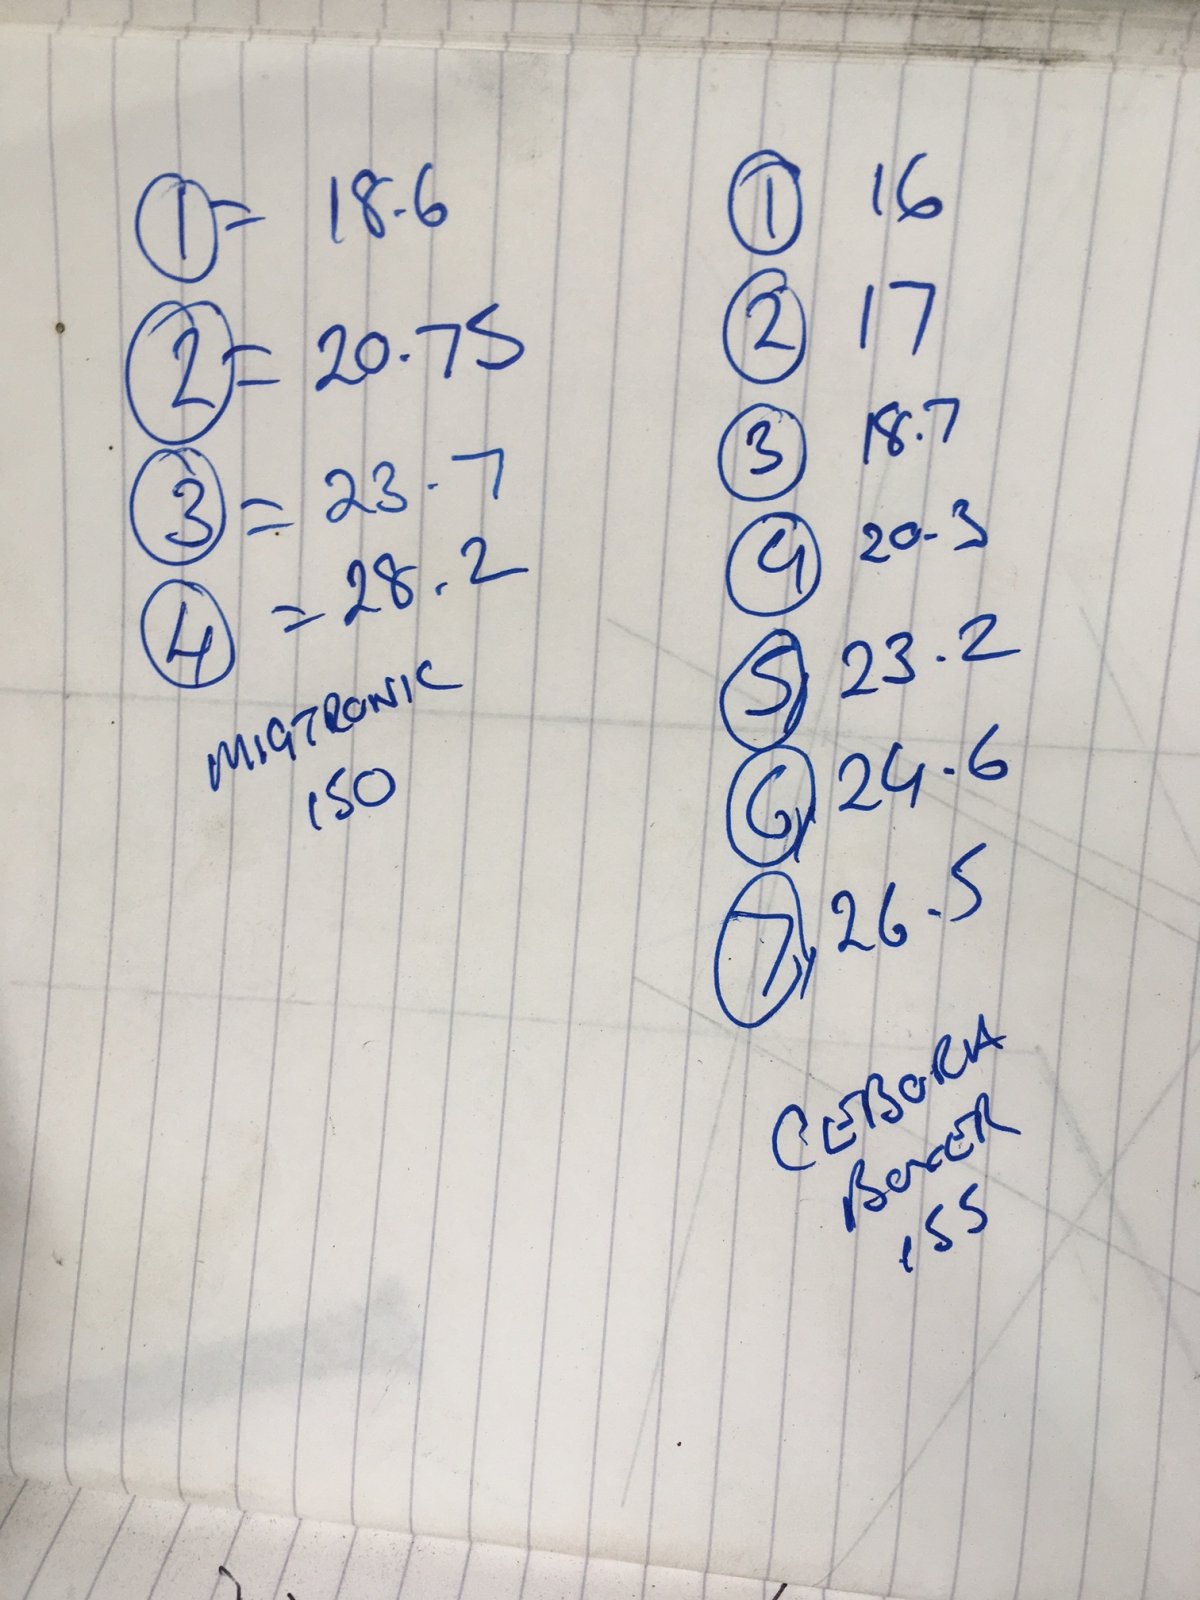 1 = 18.6
2 = 20.75
3 = 23.7
4 = 28.2
MIGTRONIC
150
1 16
2 17
3 18.7
4 20.3
5 23.2
6 24.6
7 26.5
CEBORA
BOXER
155